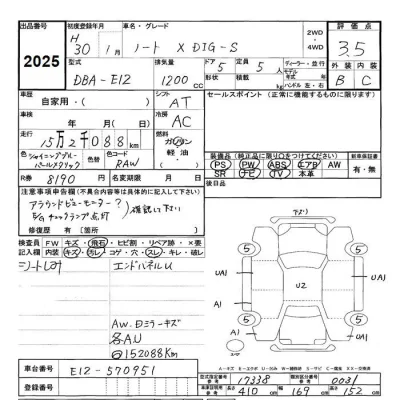 出品番号 初度登録年月 車名・グレード 2WD ・ 4WD 評価点
2025 H 30年 1月 ノート X DIG-S 3.5
型式 排気量 ドア 定員 ディーラー・並行 外装 内装
DBA-E12 1200 CC 5 5人 形状 積載 kg モデル年式 ハンドル 右・左 B C
車歴 シフト セールスポイント(正常に機能するものに限ります)
自家用・( ) AT
車検 冷房
年 月( ) AC
走行 燃料
15万2千088km ガソリン 軽油
色 シャイニングブルーパールメタリック 色コード RAW
装備品(純正品に限り○をつけてください) 新車保証書
PS PW ABS エアB AW 有・無
SR ナビ TV 本革
R券 8190 名変期限 月 日 後日品
注意事項申告欄(不具合内容等は具体的に記入して下さい)
アラウンドビューモニター? 確認して下さい
E/gチェックランプ点灯
修復歴 有(箇所 )
検査員 FW キズ・飛石・ヒビ割・リペア跡・×要
記入欄 内装 キズ・汚レ・コゲ・穴・スレ・キレ・破レ
シートしみ エンドパネルU
AW・Dミラーキズ
各AU
152088Km
5 5 UA1 UA1 U2 A1 UA1 5 5
車台番号 E12-570951
登録番号
型式指定番号 参考 17338 類別区分番号 参考 0031
車両証明用 参考 長さ 410 cm 幅 169 cm 高さ 152 cm